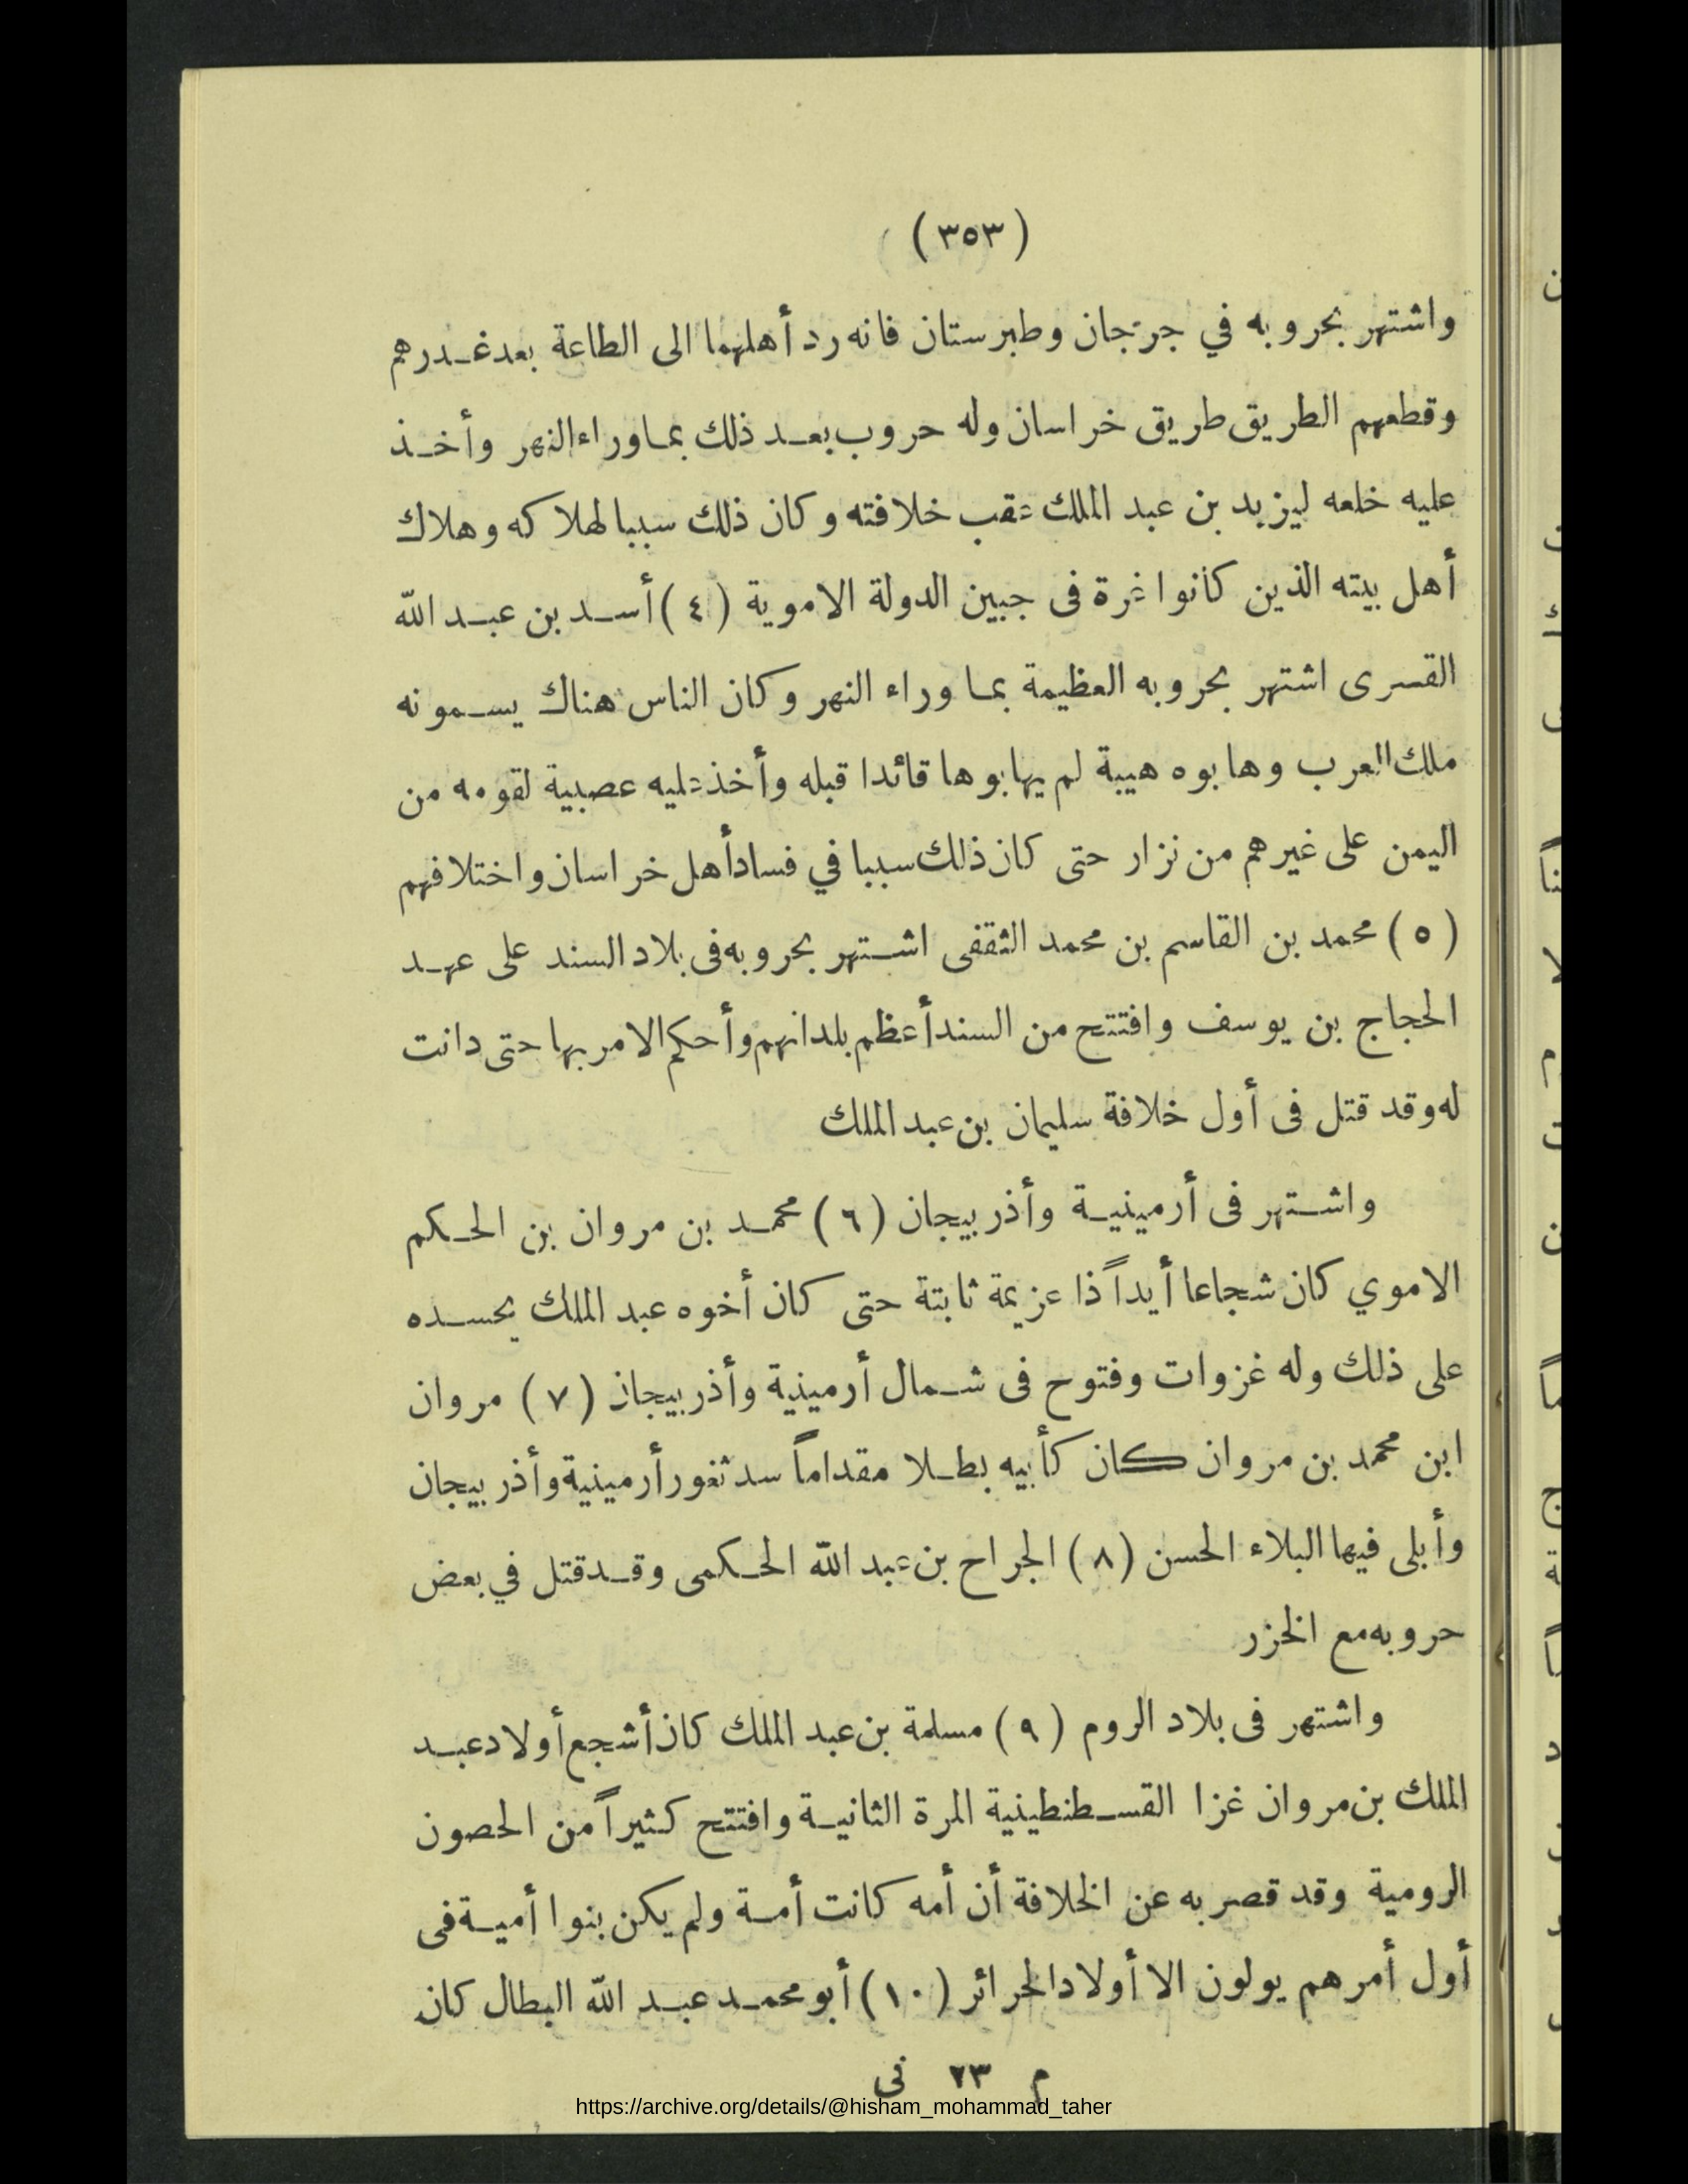 (٣٥٣)
واشتهر بحروبه في جرجان وطبرستان فانه رد أهلهما الى الطاعة بعد غدرهم
وقطعهم الطريق طريق خراسان وله حروب بعد ذلك بما وراء النهر وأخذ
عليه خلعه ليزيد بن عبد الملك عقب خلافته وكان ذلك سببا لهلاكه وهلاك
أهل بيته الذين كانوا غرة فى جبين الدولة الاموية (٤) أسد بن عبد الله
القسرى اشتهر بحروبه العظيمة بما وراء النهر وكان الناس هناك يسمونه
ملك العرب وهابوه هيبة لم يهابوها قائدا قبله وأخذ عليه عصبية لقومه من
اليمن على غيرهم من نزار حتى كان ذلك سببا في فساد أهل خراسان واختلافهم
(٥) محمد بن القاسم بن محمد الثقفى اشتهر بحروبه فى بلاد السند على عهد
الحجاج بن يوسف وافتتح من السند أعظم بلدانهم وأحكم الامر بها حتى دانت
له وقد قتل فى أول خلافة سليمان بن عبد الملك
واشتهر فى أرمينية وأذربيجان (٦) محمد بن مروان بن الحكم
الاموي كان شجاعا أيداً ذا عزيمة ثابتة حتى كان أخوه عبد الملك يحسده
على ذلك وله غزوات وفتوح فى شمال أرمينية وأذربيجان (٧) مروان
ابن محمد بن مروان كان كأبيه بطلا مقداماً سد ثغور أرمينية وأذربيجان
وأبلى فيها البلاء الحسن (٨) الجراح بن عبد الله الحكمى وقد قتل في بعض
حروبه مع الخزر
واشتهر فى بلاد الروم (٩) مسلمة بن عبد الملك كان أشجع أولاد عبد
الملك بن مروان غزا القسطنطينية المرة الثانية وافتتح كثيراً من الحصون
الرومية وقد قصر به عن الخلافة أن أمه كانت أمة ولم يكن بنوا أمية فى
أول أمرهم يولون الا أولاد الحرائر (١٠) أبو محمد عبد الله البطال كان
م ٢٣ نى
https://archive.org/details/@hisham_mohammad_taher